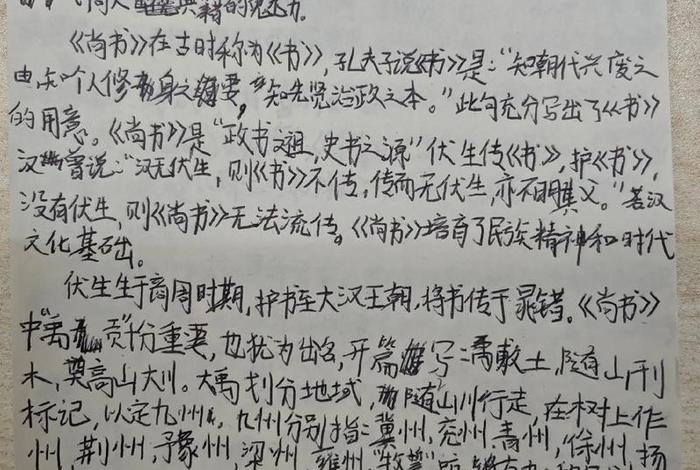 典籍的魅力。
《尚书》在古时称为《书》,孔夫子说《书》是:“知朝代兴废之
由,知个人修身之要,知先贤治政之本。”此句充分写出了《书》
的用意。《尚书》是“政书之祖,史书之源”伏生传《书》,护《书》,
汉曾说:“汉无伏生,则《书》不传,传而无伏生,亦不明其义。”若汉
没有伏生,则《尚书》无法流传。《尚书》培育了民族精神和时代
文化基础。
伏生生于商周时期,护书至大汉王朝,将书传于晁错。《尚书》
中“禹贡”份重要,也尤为出名,开篇写:禹敷土,随山刊
木,奠高山大川。大禹划分地域,随山川行走,在树上作
标记,以定九州,九州分别指:冀州,兖州,青州,徐州,扬
州,荆州,豫州,梁州,雍州,“牧誓”